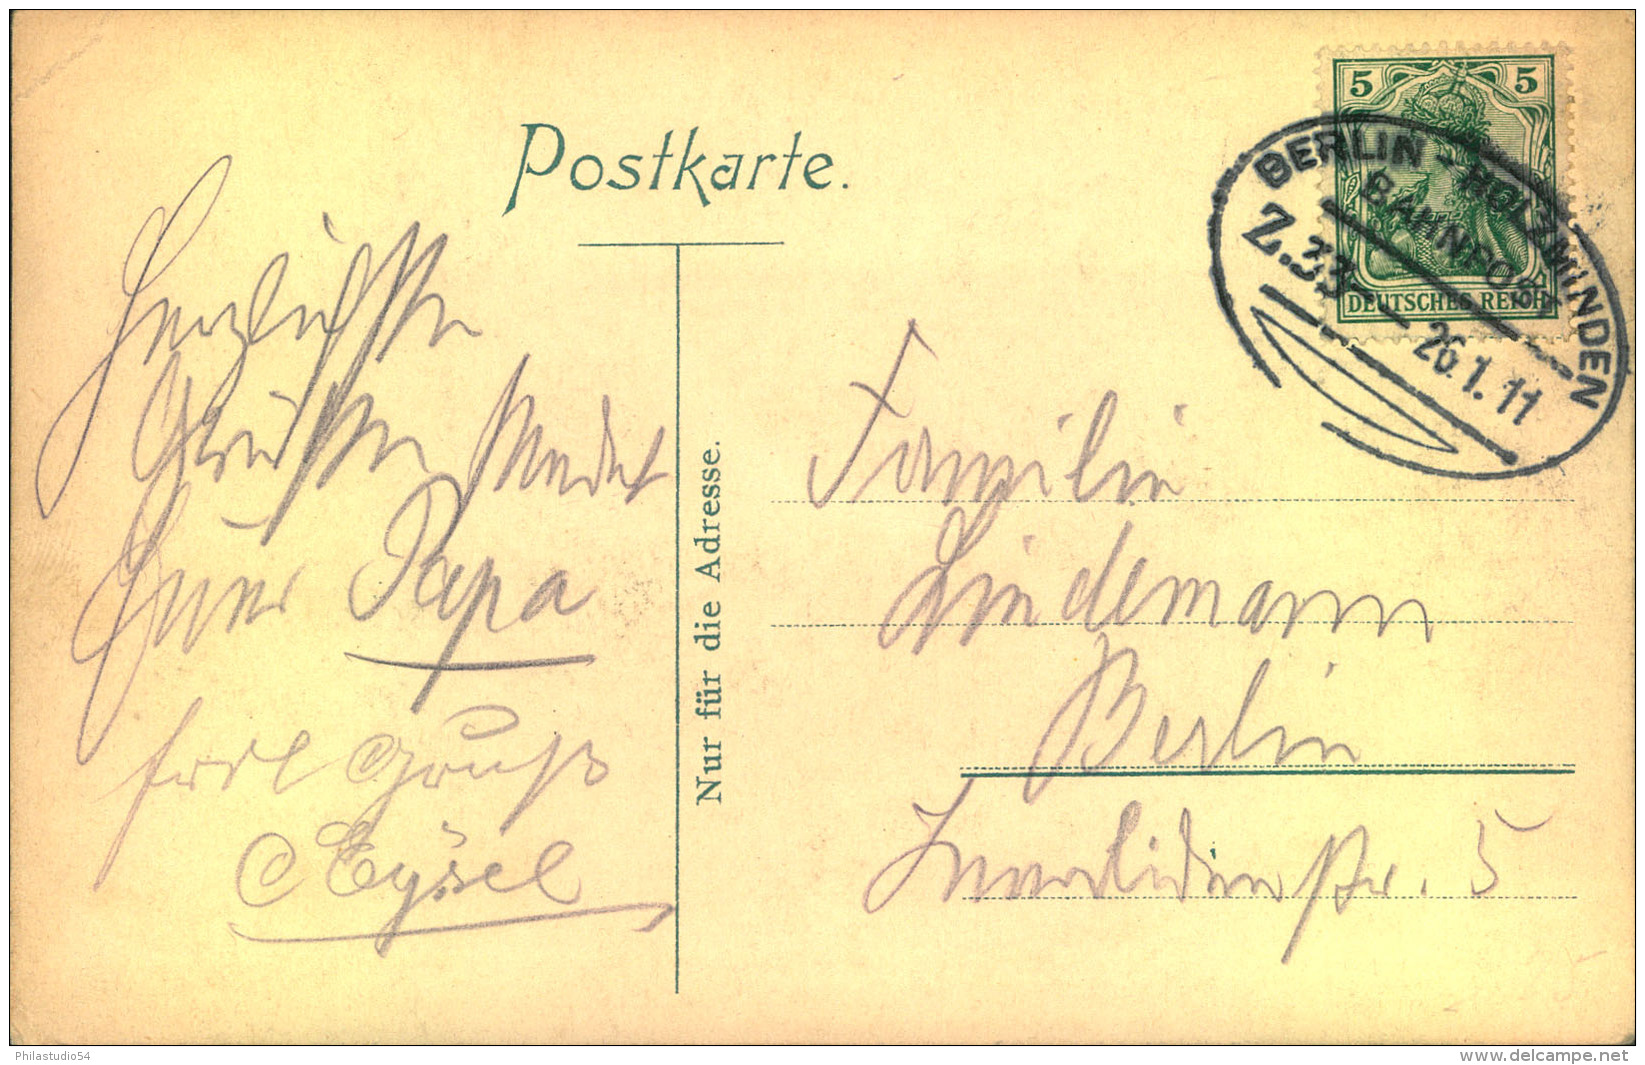 Postkarte.
5 5
DEUTSCHES REICH
BERLIN - HOLZMINDEN
BAHNPOST
Z.33
26.1.11
Herzlichsten
Grüßen sendet
Euer Papa
frdl Gruß
Nur für die Adresse.
Familie
Lindemann
Berlin
Invalidenstr. 5
Philastudio54
www.delcampe.net